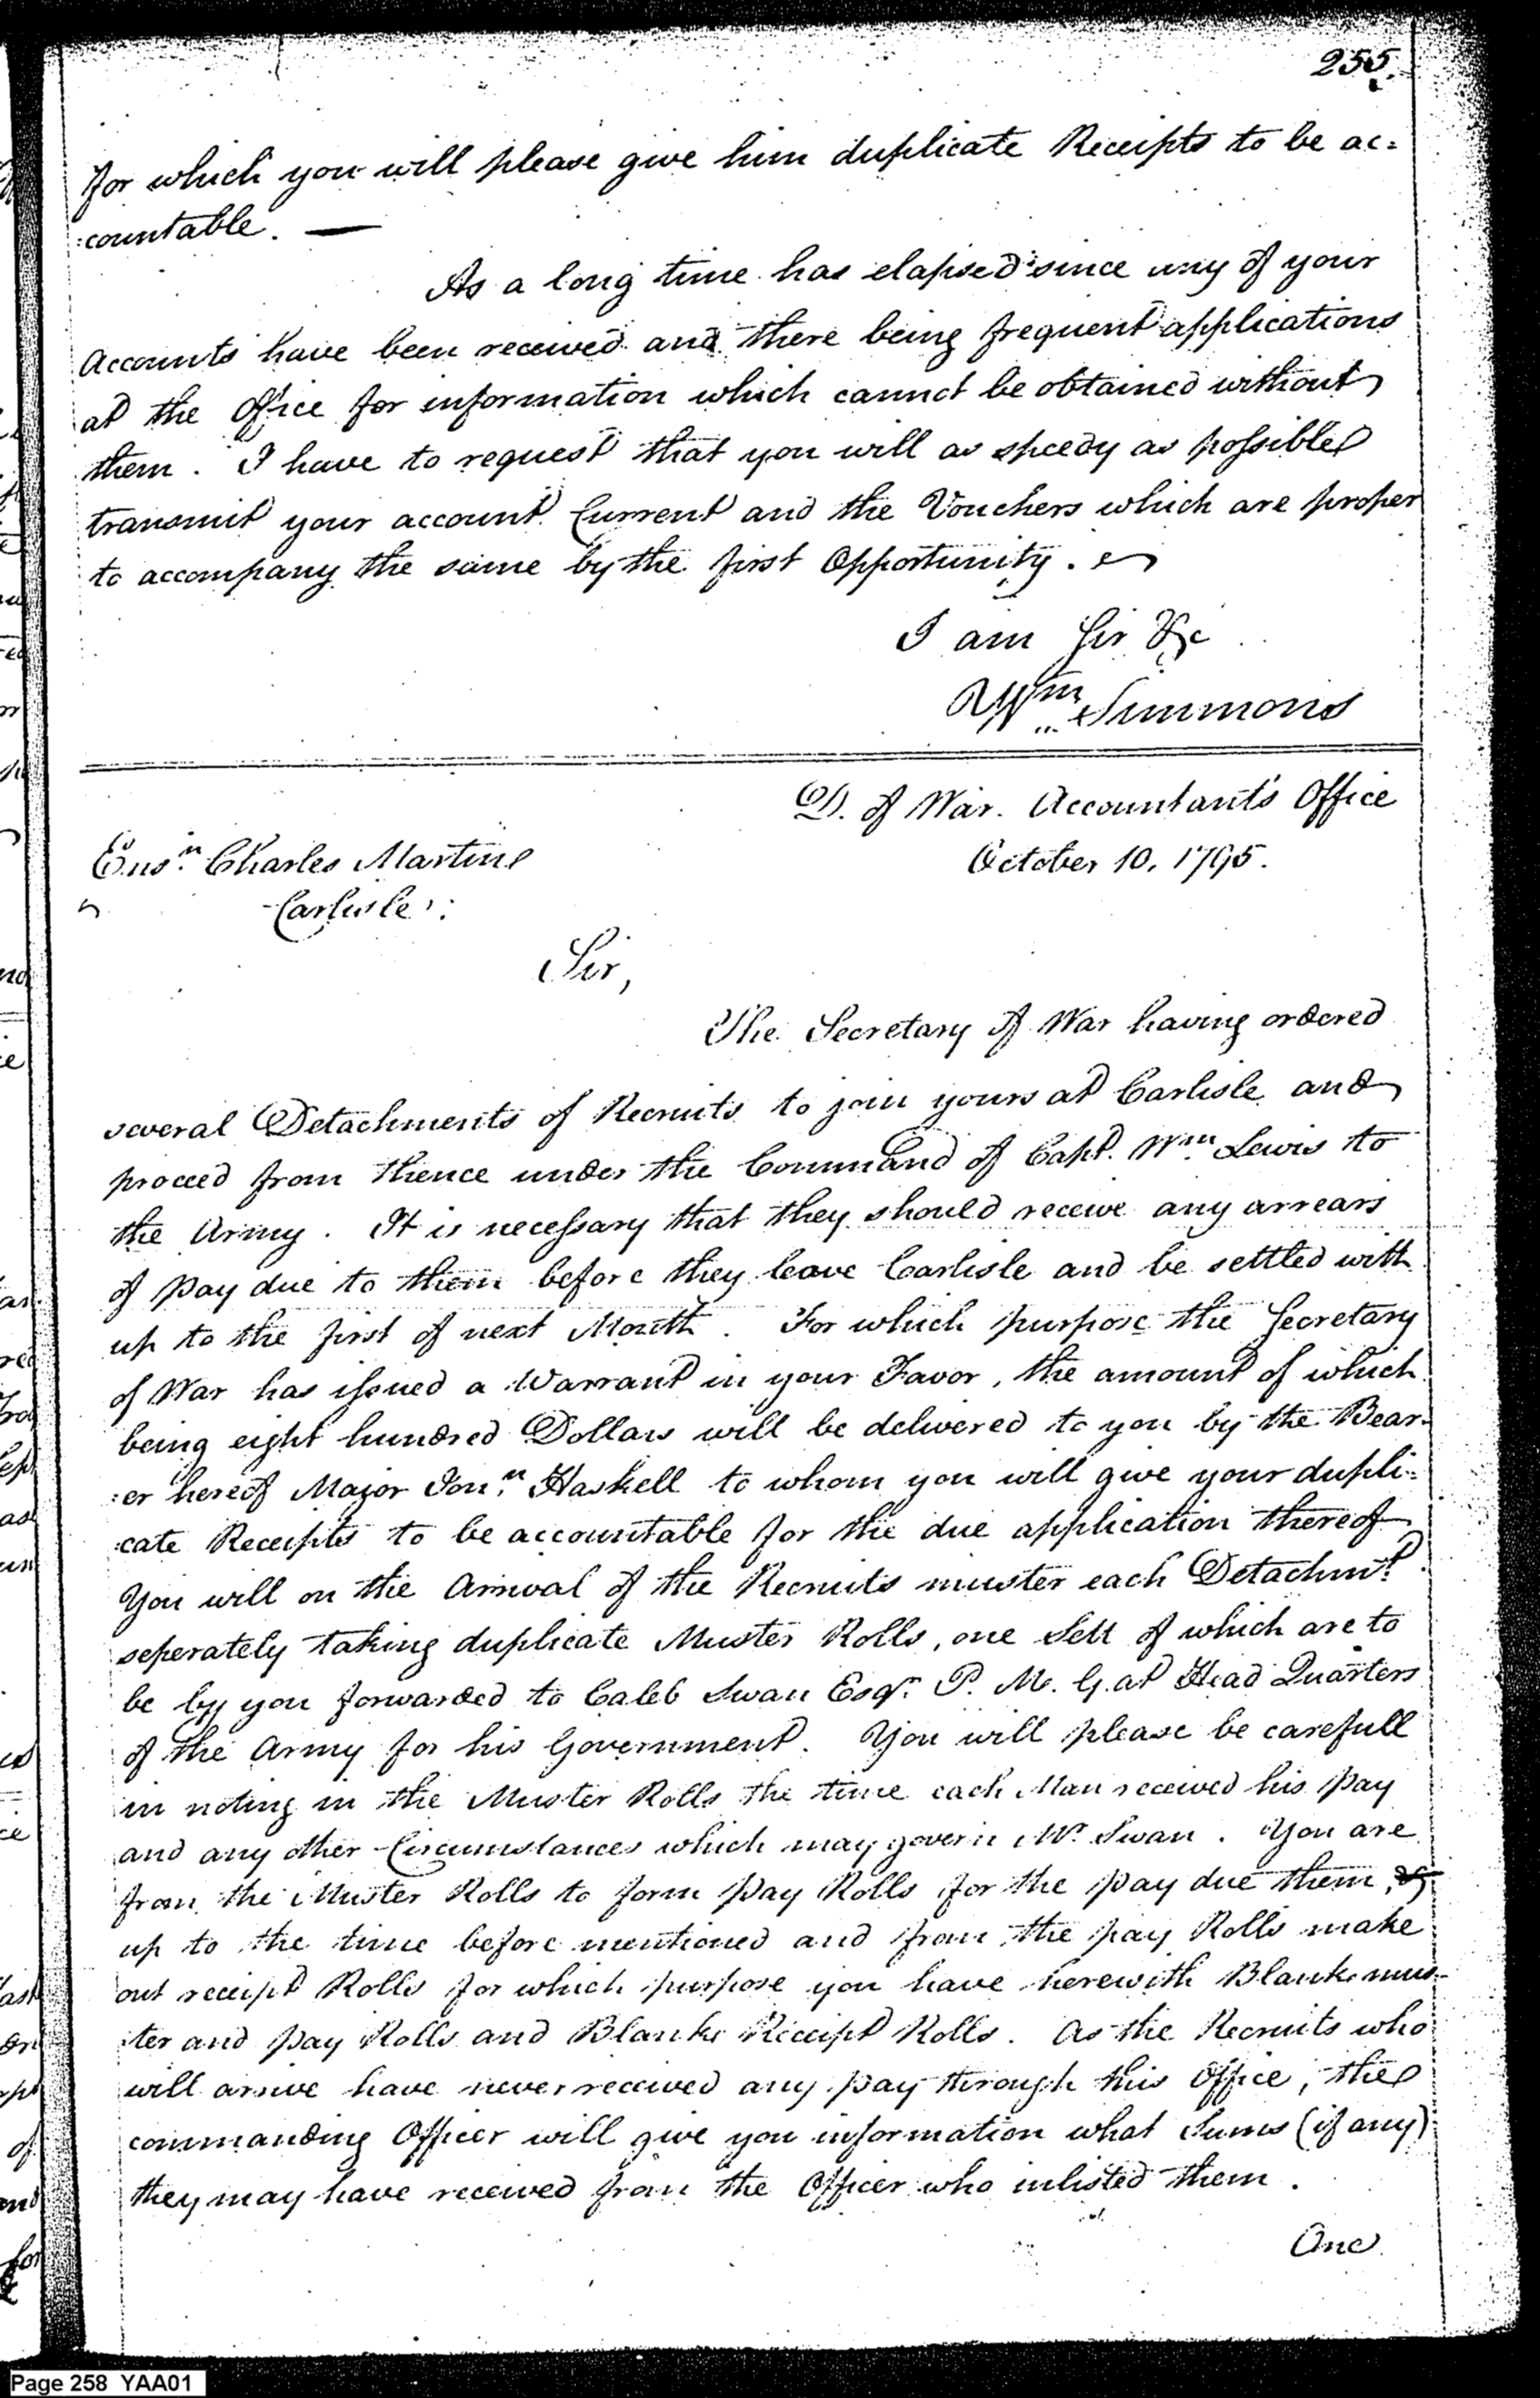 255.
for which you will please give him duplicate Receipts to be ac=
:countable. —
As a long time has elapsed since any of your
Accounts have been received and there being frequent applications
at the Office for information which cannot be obtained without
them. I have to request that you will as speedy as possible
transmit your account Current and the Vouchers which are proper
to accompany the same by the first Opportunity.
I am Sir &c
Wm Simmons
D. of War. Accountant's Office
October 10, 1795.
Ensn. Charles Martin
Carlisle:
Sir,
The Secretary of War having ordered
several Detachments of Recruits to join yours at Carlisle and
proceed from thence under the Command of Capt. Wm. Lewis to
the Army. It is necessary that they should receive any arrears
of pay due to them before they leave Carlisle and be settled with
up to the first of next Month. For which purpose the Secretary
of War has issued a Warrant in your Favor, the amount of which
being eight hundred Dollars will be delivered to you by the Bear-
:er hereof Major Jonn. Haskell to whom you will give your dupli-
:cate Receipts to be accountable for the due application thereof
You will on the Arrival of the Recruits muster each Detachmt.
seperately taking duplicate Muster Rolls, one Sett of which are to
be by you forwarded to Caleb Swan Esqr. P. M. G. at Head Quarters
of the Army for his Government. You will please be carefull
in noting in the Muster Rolls the time each Man received his pay
and any other Circumstances which may govern Mr. Swan. You are
from the Muster Rolls to form pay Rolls for the pay due them,
up to the time before mentioned and from the pay Rolls make
out receipt Rolls for which purpose you have herewith Blank mus-
:ter and pay Rolls and Blank Receipt Rolls. As the Recruits who
will arrive have never received any pay through this Office, the
commanding Officer will give you information what Sums (if any)
they may have received from the Officer who inlisted them.
One
Page 258 YAA01